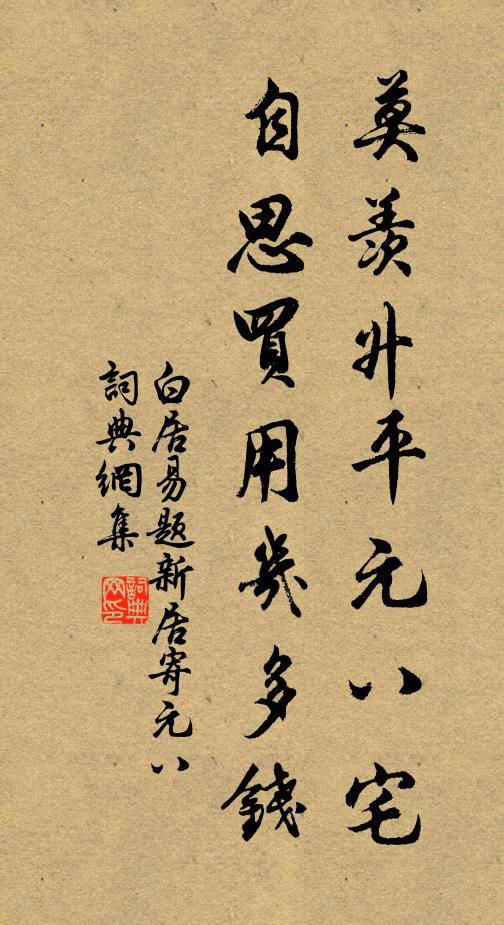 莫羨升平元八宅
自思買用幾多錢
白居易題新居寄元八
詞典網集
詞典網印